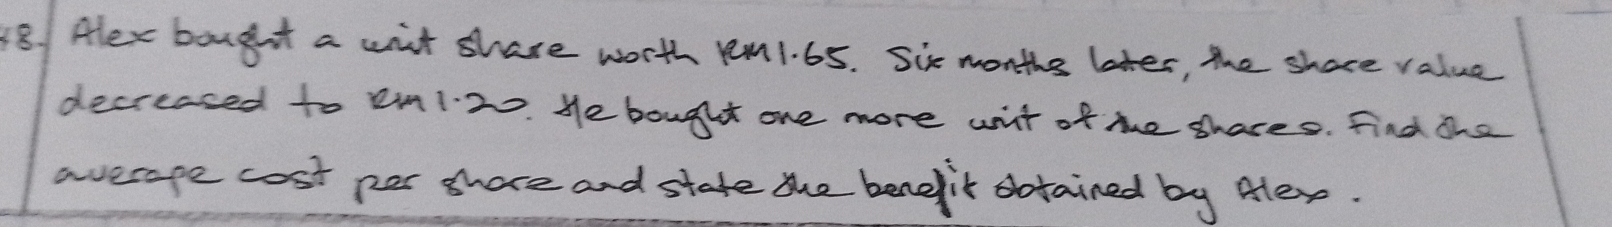 48. Alex bought a unit share worth RM1.65. Six months later, the share value
decreased to RM1.20. He bought one more unit of the shares. Find the
average cost per share and state the benefit obtained by Alex.